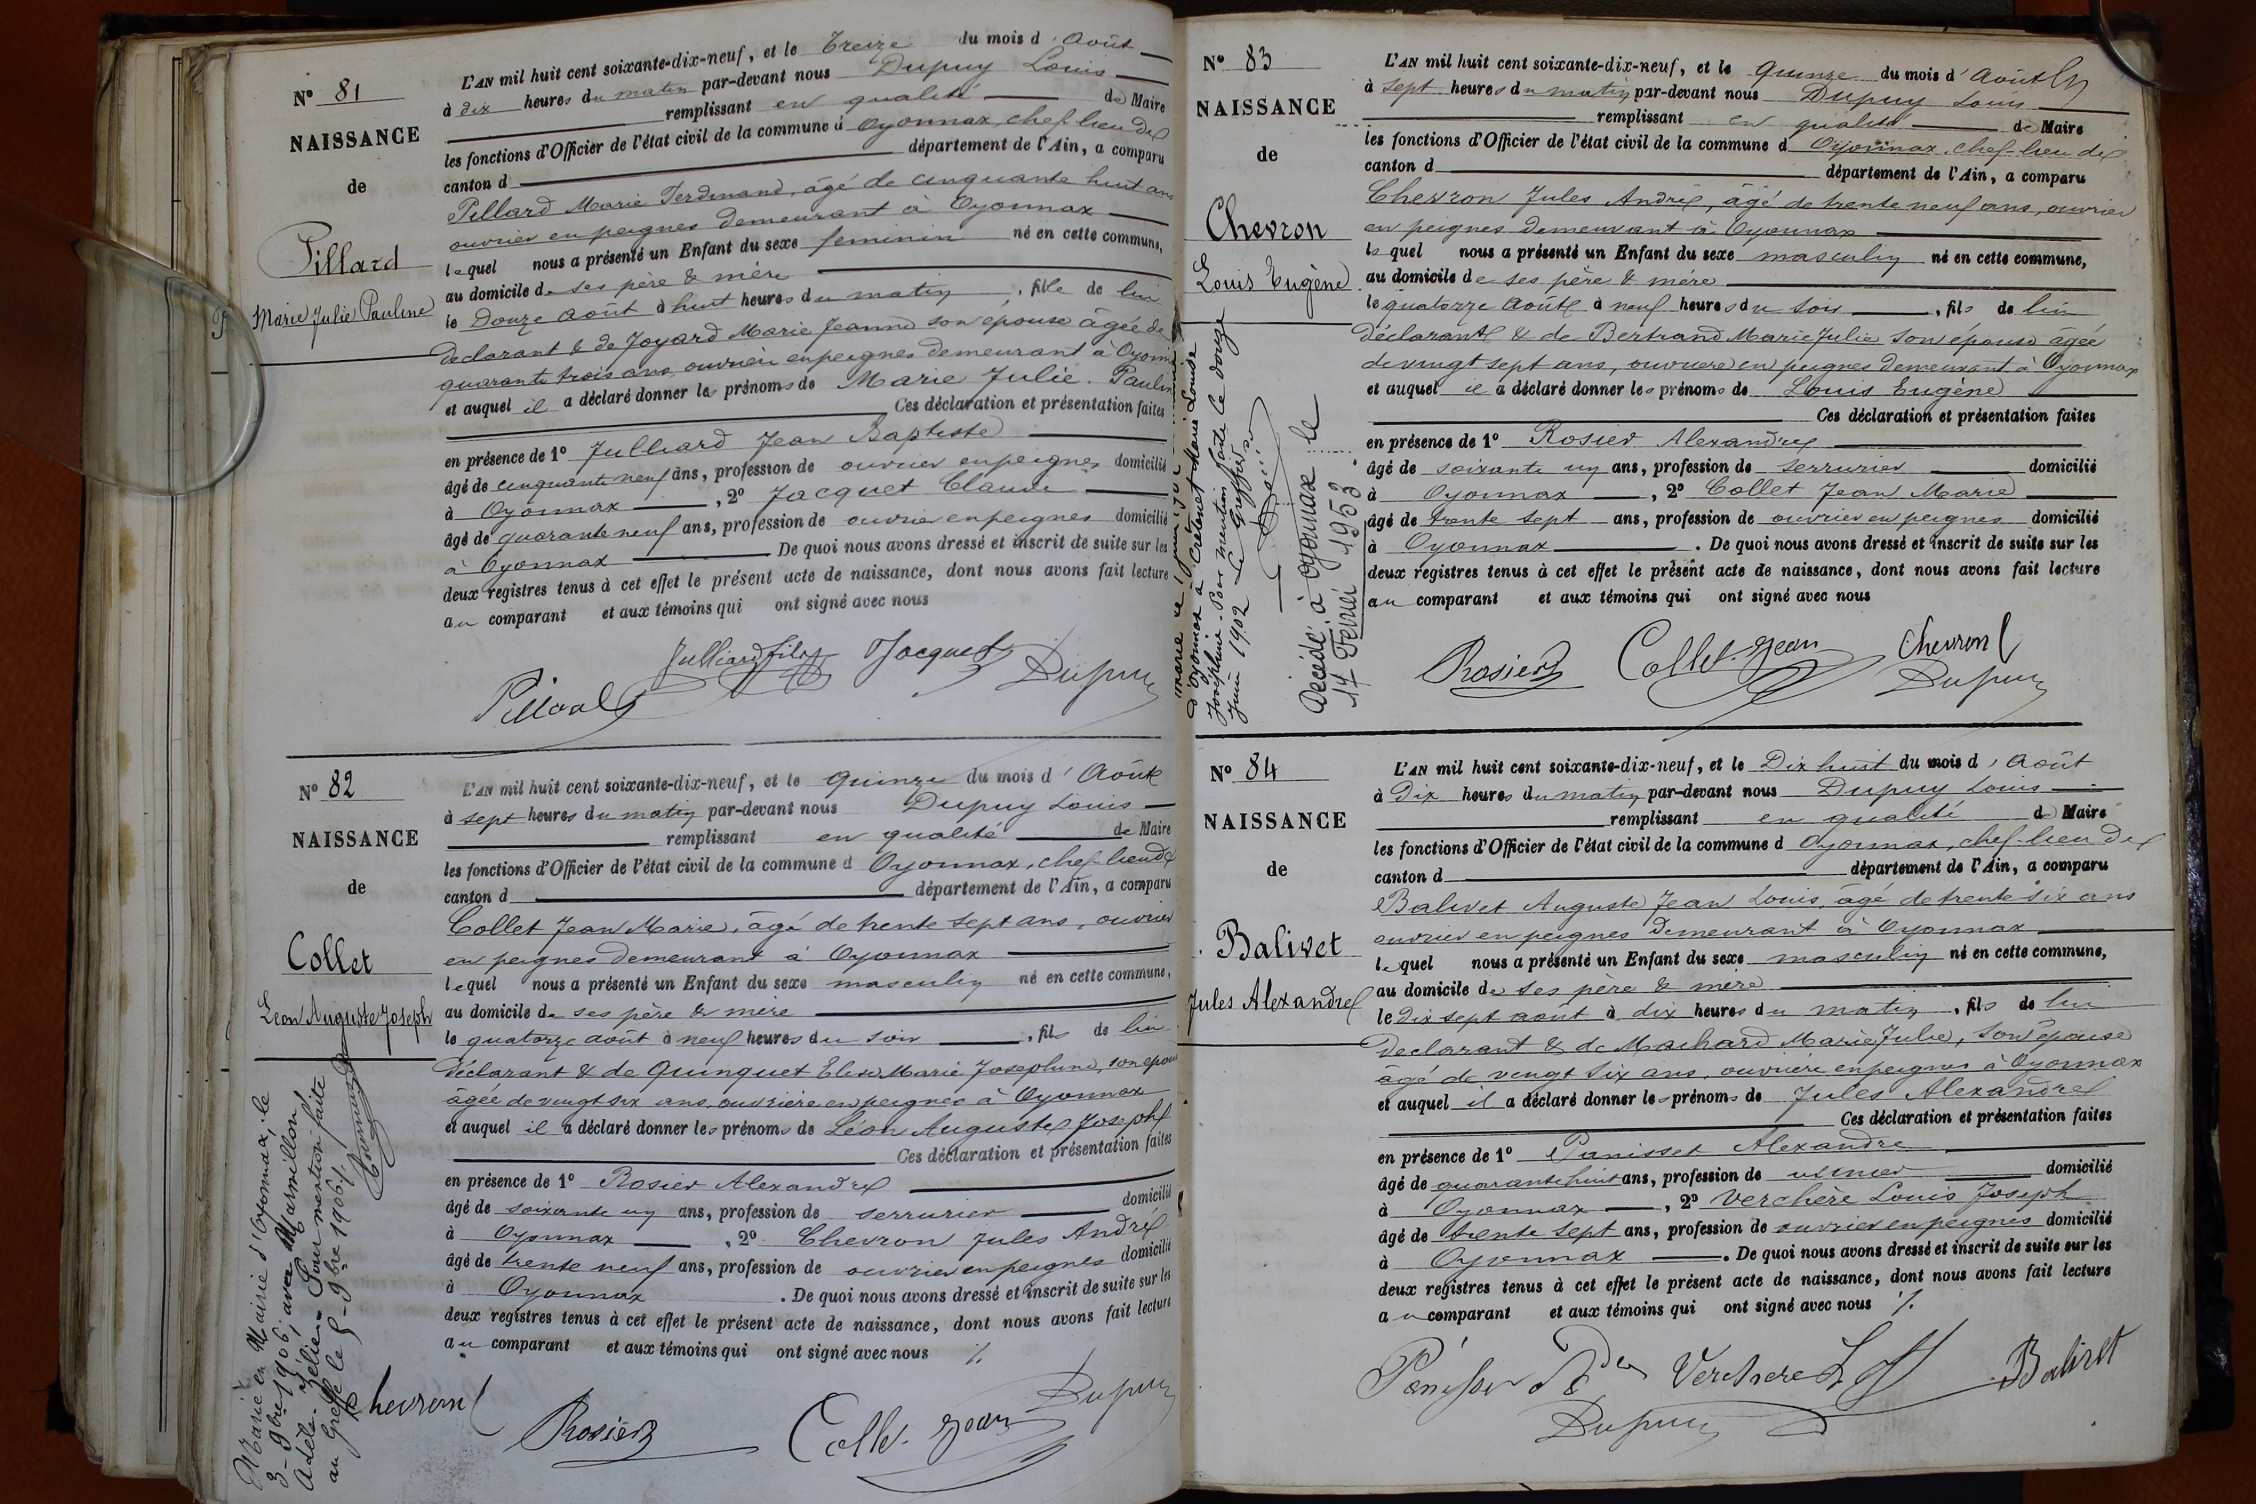 N° 81
NAISSANCE
de
Pillard
Marie Julie Pauline
L'AN mil huit cent soixante-dix-neuf, et le Treize du mois d'Août
à dix heures du matin par-devant nous Dupuy Louis
remplissant en qualité de Maire
les fonctions d'Officier de l'état civil de la commune d Oyonnax, chef-lieu de
canton d département de l'Ain, a comparu
Pillard Marie Ferdinand, âgé de cinquante huit ans
ouvrier en peignes demeurant à Oyonnax
lequel nous a présenté un Enfant du sexe feminin né en cette commune,
au domicile de ses père & mère
le Douze Août à huit heures du matin, fille de lui
declarant & de Joyard Marie Jeanne son épouse âgée de
quarante trois ans, ouvrière en peignes demeurant à Oyonnax
et auquel il a déclaré donner les prénoms de Marie Julie Pauline
Ces déclaration et présentation faites
en présence de 1° Julliard Jean Baptiste
âgé de cinquante neuf ans, profession de ouvrier en peignes domicilié
à Oyonnax, 2° Jacquet Claude
âgé de quarante neuf ans, profession de ouvrier en peignes domicilié
à Oyonnax De quoi nous avons dressé et inscrit de suite sur les
deux registres tenus à cet effet le présent acte de naissance, dont nous avons fait lecture
au comparant et aux témoins qui ont signé avec nous
Julliard fils Jacquet
Pillard Dupuy
N° 82
NAISSANCE
de
Collet
Léon Auguste Joseph
Marié en Mairie d'Oyonnax, le
3 - 9bre 1906, avec Marmillon,
Adèle Zélie. - Pour mention faite
au Greffe le 5 - 9bre 1906.
L'AN mil huit cent soixante-dix-neuf, et le quinze du mois d'Août
à sept heures du matin par-devant nous Dupuy Louis
remplissant en qualité de Maire
les fonctions d'Officier de l'état civil de la commune d Oyonnax, chef-lieu de
canton d département de l'Ain, a comparu
Collet Jean Marie, âgé de trente sept ans, ouvrier
en peignes demeurant à Oyonnax
lequel nous a présenté un Enfant du sexe masculin né en cette commune,
au domicile de ses père & mère
le quatorze août à neuf heures du soir, fils de lui
déclarant & de Quinquet Elise Marie Josephine, son épouse
âgée de vingt six ans, ouvrière en peignes à Oyonnax
et auquel il a déclaré donner les prénoms de Léon Auguste Joseph
Ces déclaration et présentation faites
en présence de 1° Rosier Alexandre
âgé de soixante un ans, profession de serrurier domicilié
à Oyonnax, 2° Chevron Jules André
âgé de trente neuf ans, profession de ouvrier en peignes domicilié
à Oyonnax. De quoi nous avons dressé et inscrit de suite sur les
deux registres tenus à cet effet le présent acte de naissance, dont nous avons fait lecture
au comparant et aux témoins qui ont signé avec nous ./.
Chevron Rosier Collet Jean Dupuy
N° 83
NAISSANCE
de
Chevron
Louis Eugène
Marié le
d'Oyonnax à Crétenet Marie Louise
Joséphine. Pour mention faite le douze
Juin 1902 Le Greffier
Décédé à Oyonnax le
17 Février 1953
L'AN mil huit cent soixante-dix-neuf, et le quinze du mois d'Août
à sept heures du matin par-devant nous Dupuy Louis
remplissant en qualité de Maire
les fonctions d'Officier de l'état civil de la commune d Oyonnax, chef-lieu de
canton d département de l'Ain, a comparu
Chevron Jules André, âgé de trente neuf ans, ouvrier
en peignes demeurant à Oyonnax
lequel nous a présenté un Enfant du sexe masculin né en cette commune,
au domicile de ses père & mère
le quatorze Août à neuf heures du soir, fils de lui
déclarant & de Bertrand Marie Julie son épouse âgée
de vingt sept ans, ouvrière en peignes demeurant à Oyonnax
et auquel il a déclaré donner les prénoms de Louis Eugène
Ces déclaration et présentation faites
en présence de 1° Rosier Alexandre
âgé de soixante un ans, profession de serrurier domicilié
à Oyonnax, 2° Collet Jean Marie
âgé de trente sept ans, profession de ouvrier en peignes domicilié
à Oyonnax. De quoi nous avons dressé et inscrit de suite sur les
deux registres tenus à cet effet le présent acte de naissance, dont nous avons fait lecture
au comparant et aux témoins qui ont signé avec nous
Rosier Collet Jean Chevron
Dupuy
N° 84
NAISSANCE
de
Balivet
Jules Alexandre
L'AN mil huit cent soixante-dix-neuf, et le Dix huit du mois d'Août
à Dix heures du matin par-devant nous Dupuy Louis
remplissant en qualité de Maire
les fonctions d'Officier de l'état civil de la commune d Oyonnax, chef-lieu de
canton d département de l'Ain, a comparu
Balivet Auguste Jean Louis, âgé de trente six ans
ouvrier en peignes demeurant à Oyonnax
lequel nous a présenté un Enfant du sexe masculin né en cette commune,
au domicile de ses père & mère
le dix sept août à dix heures du matin, fils de lui
declarant & de Machard Marie Julie, son épouse
âgé de vingt six ans, ouvrière en peignes à Oyonnax
et auquel il a déclaré donner les prénoms de Jules Alexandre
Ces déclaration et présentation faites
en présence de 1° Panisset Alexandre
âgé de quarante huit ans, profession de usinier domicilié
à Oyonnax, 2° Verchère Louis Joseph
âgé de trente sept ans, profession de ouvrier en peignes domicilié
à Oyonnax. De quoi nous avons dressé et inscrit de suite sur les
deux registres tenus à cet effet le présent acte de naissance, dont nous avons fait lecture
au comparant et aux témoins qui ont signé avec nous ./.
Verchere Balivet
Dupuy